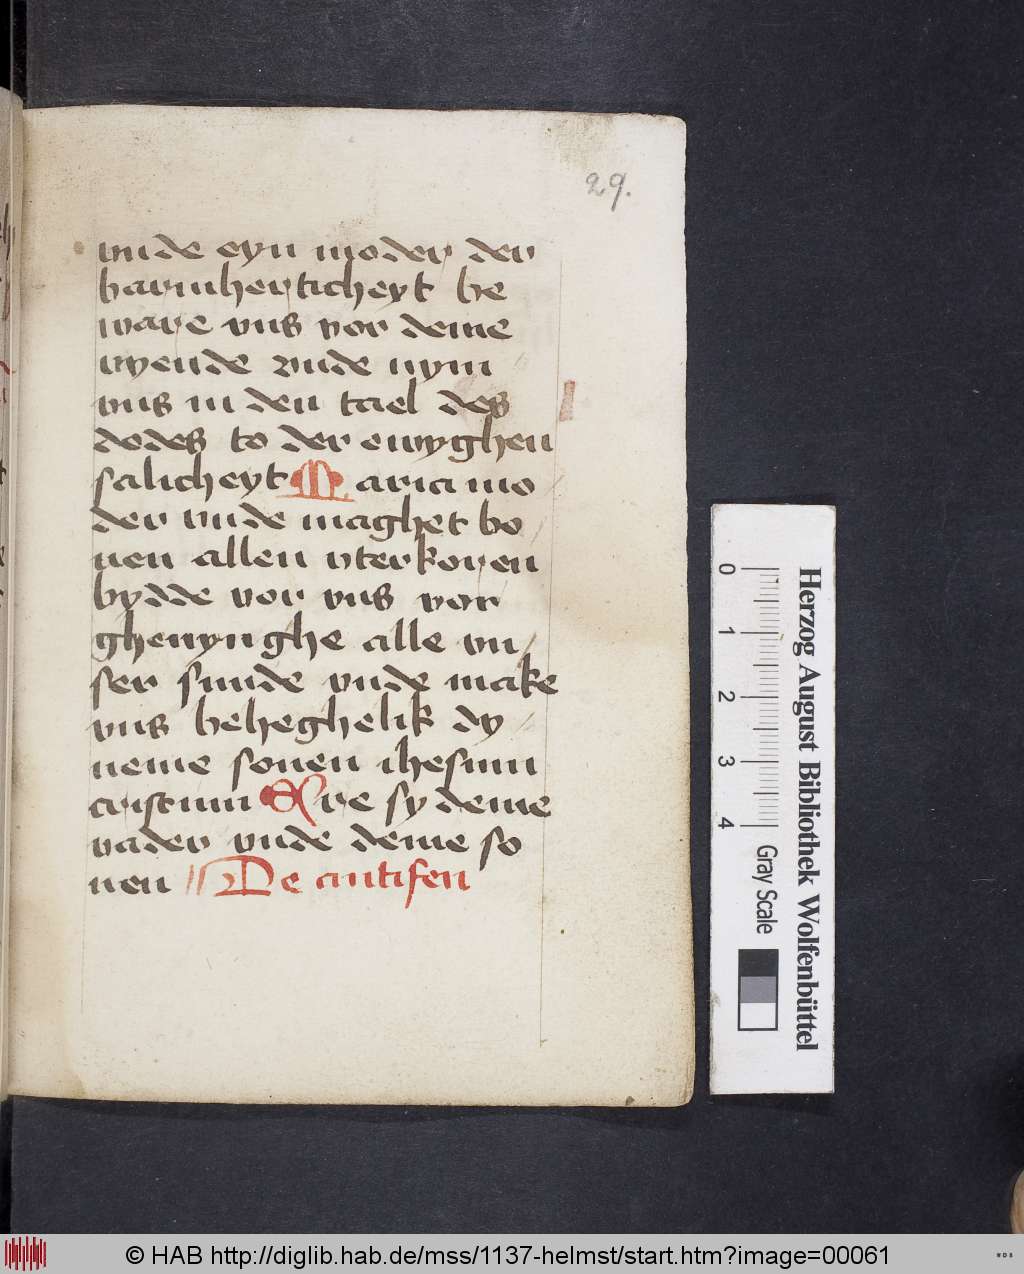 29.
vnde eyn moder der
barmherticheyt be
ware vns vor deme
vyende vnde nym
vns in den tael des
dodes to der ewyghen
salicheyt Maria mo
der vnde maghet bo
uen allen vterkoren
bydde vor vns vor
ghenynghe alle vn
ser sunde vnde make
vns beheghelik dy
neme sonen ihesum
cristum Ere sy deme
vader vnde deme so
nen De antifen
Herzog August Bibliothek Wolfenbüttel
0 1 2 3 4 Gray Scale
© HAB http://diglib.hab.de/mss/1137-helmst/start.htm?image=00061